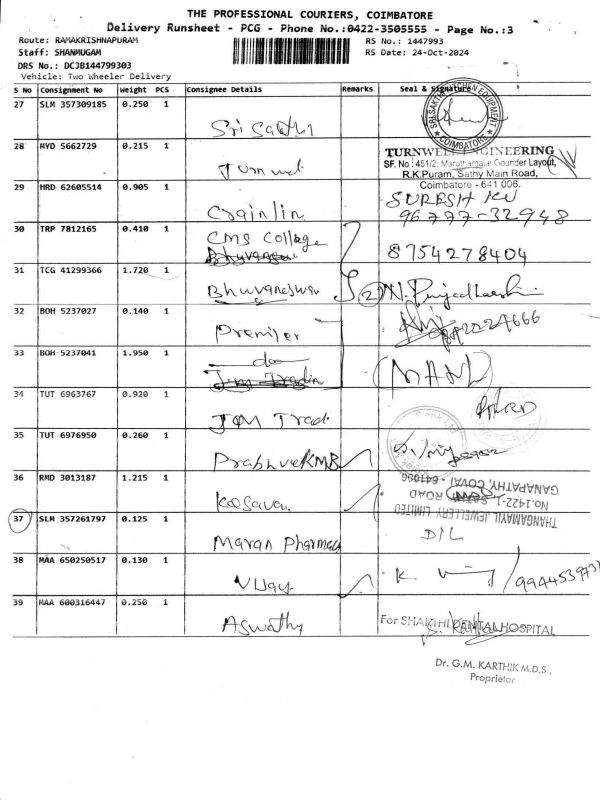 THE PROFESSIONAL COURIERS, COIMBATORE
Delivery Runsheet - PCG - Phone No.:0422-3505555 - Page No.:3
Route: RAMAKRISHNAPURAM RS No.: 1447993
Staff: SHANMUGAM RS Date: 24-Oct-2024
DRS No.: DCJB144799303
Vehicle: Two Wheeler Delivery
S No Consignment No Weight PCS Consignee Details Remarks Seal & Signature
27 SLM 357309185 0.250 1
Sri Sakthi
COIMBATORE
28 HYD 5662729 0.215 1
TURNWELL ENGINEERING
SF. No : 451/2, Maruthamalai Gounder Layout,
R.K.Puram, Sathy Main Road,
Coimbatore - 641 006.
29 HRD 62605514 0.905 1
Crainlin SURESH KU
96777-32948
30 TRP 7812165 0.410 1
CMS College
8754278404
31 TCG 41299366 1.720 1
Bhuvaneswari (2)
32 BOH 5237027 0.140 1
Premier
33 BOH 5237041 1.950 1
do
34 TUT 6963767 0.920 1
35 TUT 6976950 0.260 1
KMB
36 RMD 3013187 1.215 1
Kesavan
THANGAMAYIL JEWELLERY LIMITED
NO.1422-1, ROAD
GANAPATHY, COVAI - 641006
37 SLM 357261797 0.125 1
Maran Pharmacy
38 MAA 650250517 0.130 1
Vijay
39 MAA 600316447 0.250 1
Aswathy
For SHAKTHI DENTAL HOSPITAL
Dr. G.M. KARTHIK M.D.S.,
Proprietor